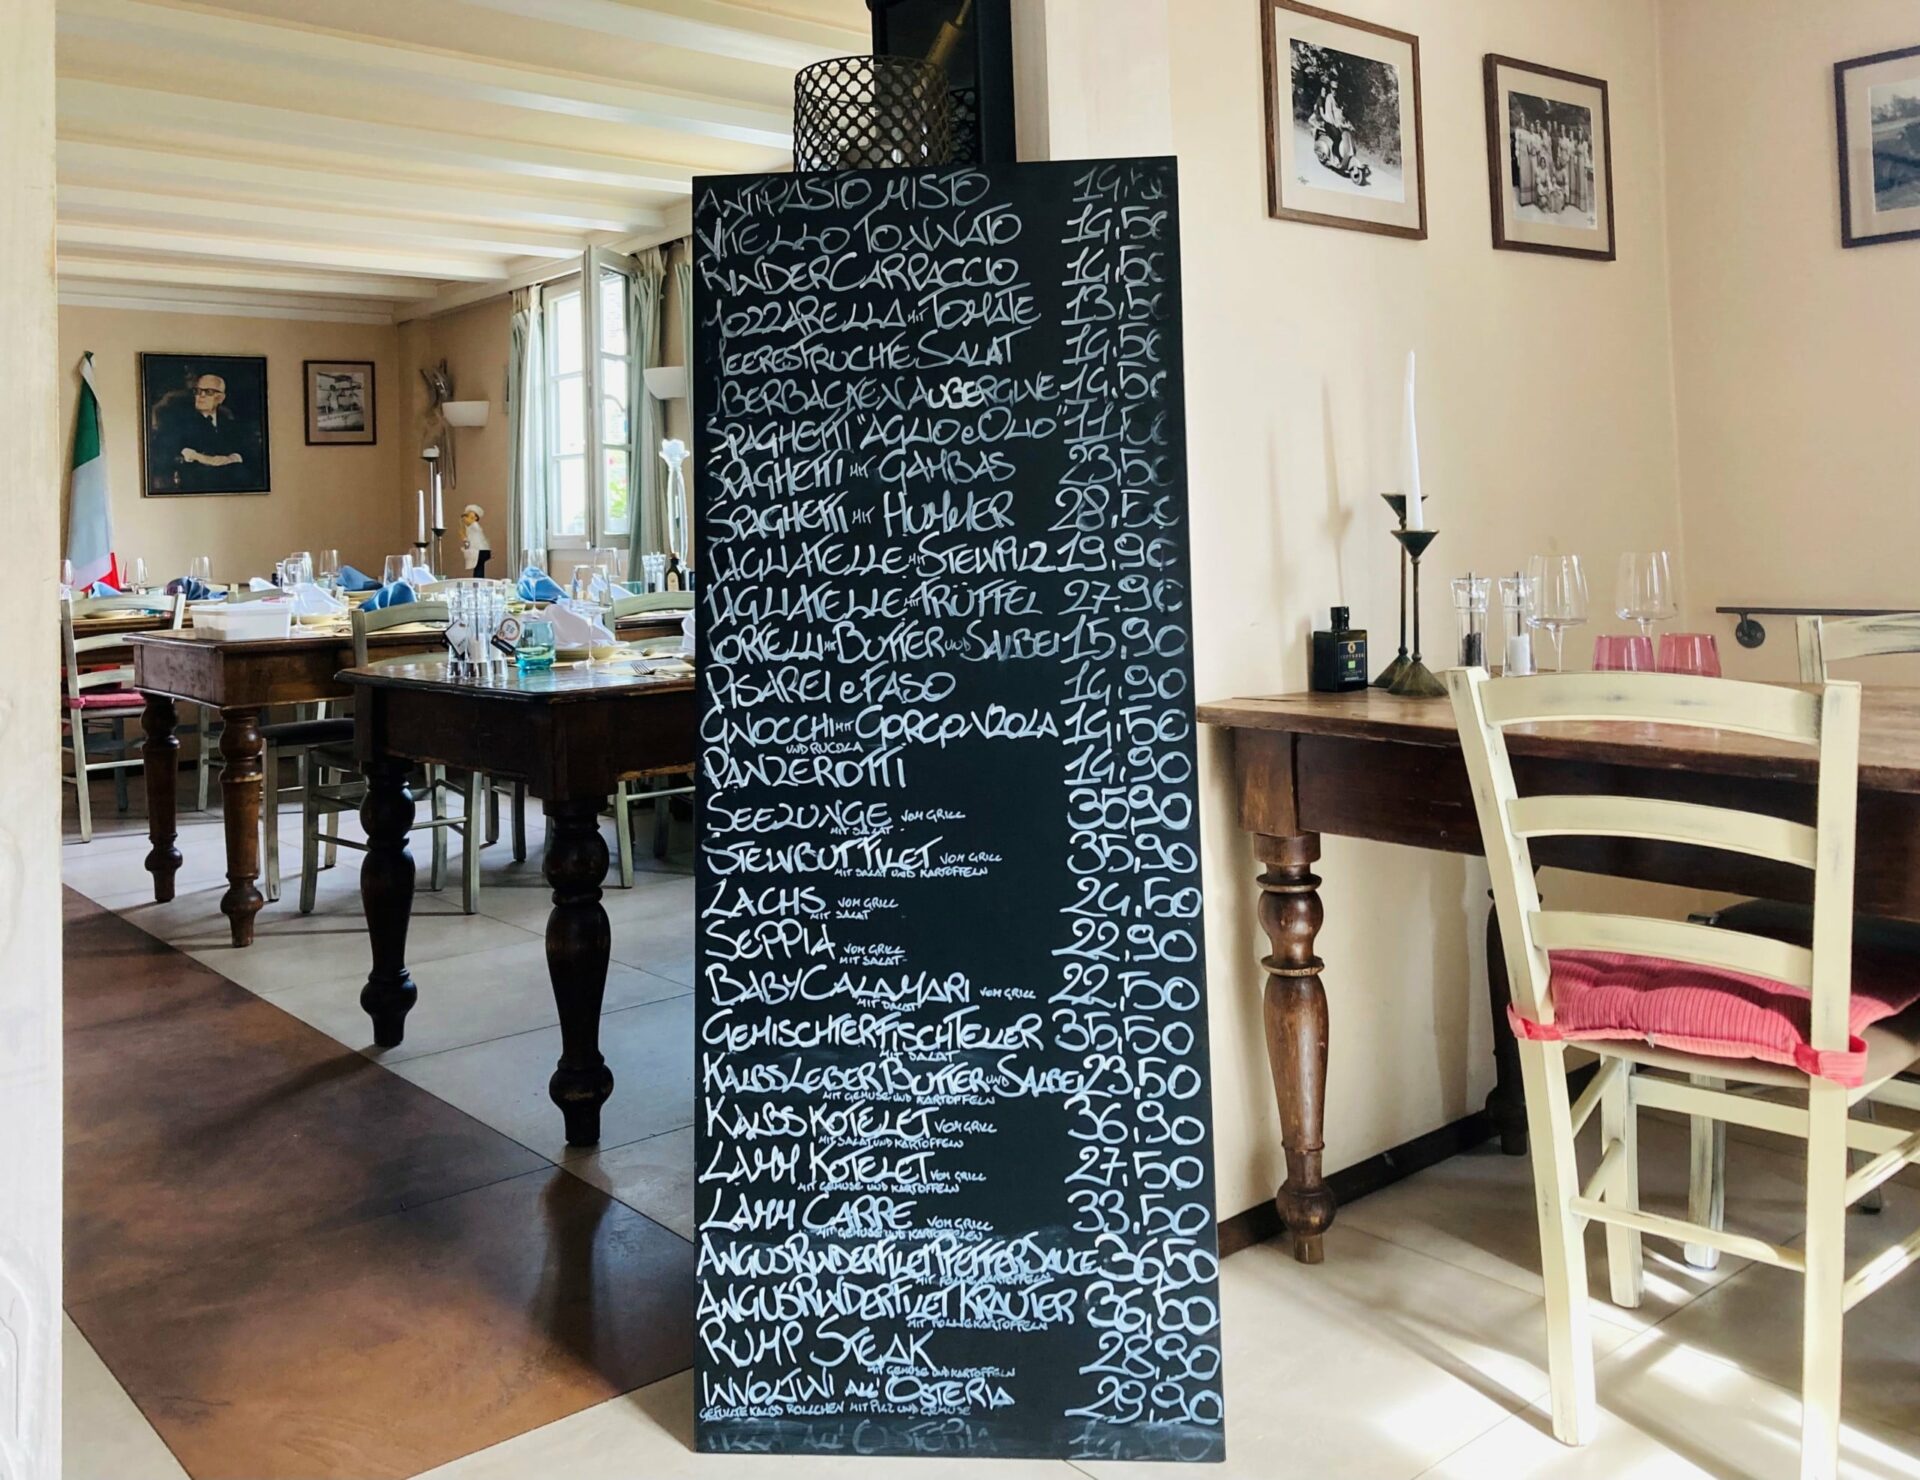 ANTIPASTO MISTO 14,50
VITELLO TONNATO 14,50
RINDERCARPACCIO 14,50
MOZZARELLA MIT TOMATE 13,50
MEERESFRÜCHTE SALAT 14,50
ÜBERBACKEN AUBERGINE 14,50
SPAGHETTI "AGLIO e OLIO" 11,50
SPAGHETTI MIT GAMBAS 23,50
SPAGHETTI MIT HUMMER 28,50
TAGLIATELLE MIT STEINPILZ 19,90
TAGLIATELLE MIT TRÜFFEL 27,90
TORTELLI MIT BUTTER UND SALBEI 15,90
PISAREI e FASO 14,90
GNOCCHI MIT GORGONZOLA 14,50
UND RUCOLA
PANZEROTTI 14,90
SEEZUNGE VOM GRILL 35,90
MIT SALAT
STEINBUTTFILET VOM GRILL 35,90
MIT SALAT UND KARTOFFELN
LACHS VOM GRILL 24,50
MIT SALAT
SEPPIA VOM GRILL 22,90
MIT SALAT
BABY CALAMARI VOM GRILL 22,50
MIT SALAT
GEMISCHTER FISCHTELLER 35,50
MIT SALAT
KALBSLEBER BUTTER UND SALBEI 23,50
MIT GEMÜSE UND KARTOFFELN
KALBS KOTELET VOM GRILL 36,90
MIT SALAT UND KARTOFFELN
LAMM KOTELET VOM GRILL 27,50
MIT GEMÜSE UND KARTOFFELN
LAMM CARRE VOM GRILL 33,50
MIT GEMÜSE UND KARTOFFELEN
ANGUS RINDERFILET PFEFFER SAUCE 36,50
MIT FOLIE KARTOFFELN
ANGUS RINDERFILET KRÄUTER 36,50
MIT FOLIE KARTOFFELN
RUMP STEAK 28,90
MIT GEMÜSE UND KARTOFFELN
INVOLTINI ALL' OSTERIA 29,90
GEFÜLLTE KALBS RÖLLCHEN MIT PILZ UND GEMÜSE
PIZZA ALL' OSTERIA